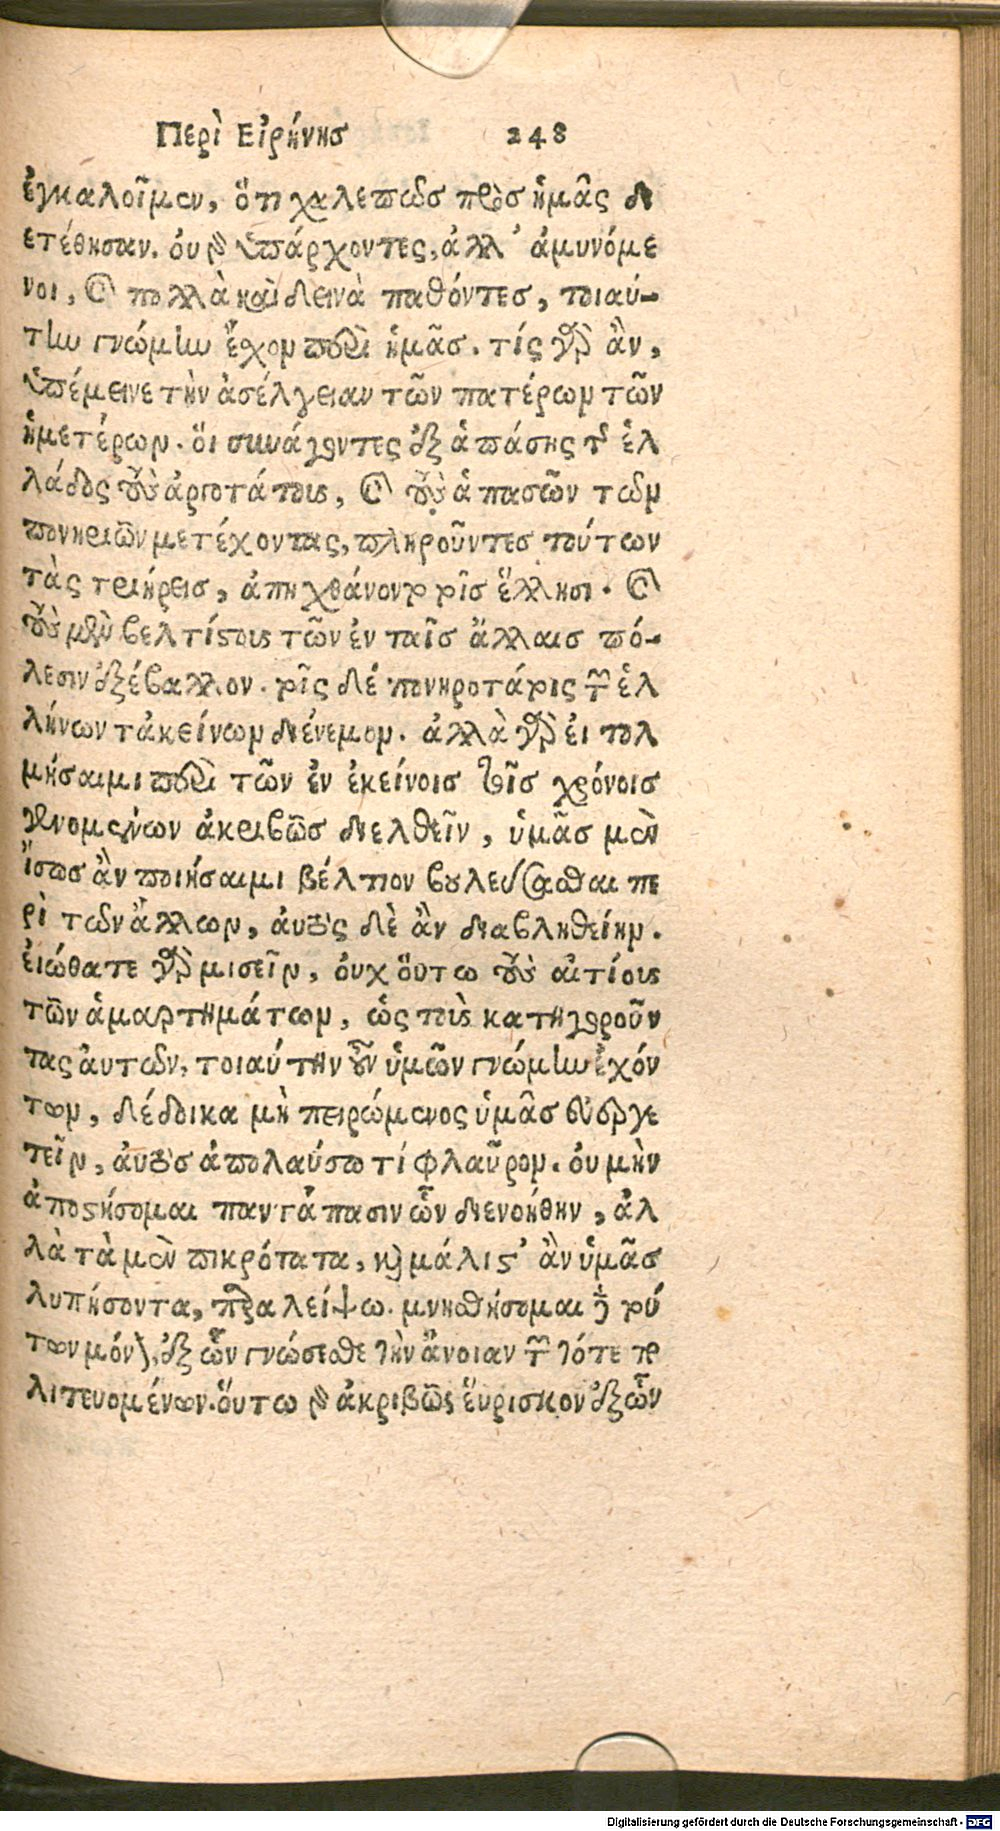 Περὶ Εἰρήνης 248
ἐγκαλοῖμεν, ὅτι χαλεπῶς πρὸς ἡμᾶς δι
ετέθησαν. ὀυ γὰρ ὑπάρχοντες, ἀλλ' ἀμυνόμε
νοι, καὶ πολλὰ καὶ δεινὰ παθόντες, τοιαύ-
την γνώμην ἔχον περὶ ἡμᾶς. τίς γὰρ ἂν,
ὑπέμεινε τὴν ἀσέλγειαν τῶν πατέρων τῶν
ἡμετέρων. ὅι συνάγοντες ἐξ ἁπάσης τῆς ἑλ
λάδος τοὺς ἀργοτάτους, καὶ τοὺς ἁπασῶν τῶν
πονηριῶν μετέχοντας, πληροῦντες τούτων
τὰς τριήρεις, ἀπηχθάνοντο τοῖς ἕλλησι. καὶ
τοὺς μὲν βελτίστους τῶν ἐν ταῖς ἄλλαις πό-
λεσιν ἐξέβαλλον. τοῖς δέ πονηροτάτοις τῶν ἑλ
λήνων τἀκείνων διένεμον. ἀλλὰ γὰρ ἐι τολ
μήσαιμι περὶ τῶν ἐν ἐκείνοις τοῖς χρόνοις
γενομένων ἀκριβῶς διελθεῖν, ὑμᾶς μὲν
ἴσως ἂν ποιήσαιμι βέλτιον βουλεύσασθαι πε
ρὶ τῶν ἄλλων, ἀυτὸς δὲ ἂν διαβληθείην.
ἐιώθατε γὰρ μισεῖν, ὀυχ ὅυτω τοὺς αἰτίους
τῶν ἁμαρτημάτων, ὡς τοὺς κατηγοροῦν
τας ἀυτῶν, τοιαύτην οὖν ὑμῶν γνώμην ἐχόν
των, δέδοικα μὴ πειρώμενος ὑμᾶς εὐεργε
τεῖν, ἀυτὸς ἀπολαύσω τί φλαῦρον. ὀυ μὴν
ἀποστήσομαι παντάπασιν ὧν διενοήθην, ἀλ
λὰ τὰ μὲν πικρότατα, καὶ μάλιστ' ἂν ὑμᾶς
λυπήσοντα, παραλείψω. μνησθήσομαι δὲ τού
των μόνον, ἐξ ὧν γνώσεσθε τὴν ἄνοιαν τῶν τότε πο
λιτευομένων. ὅυτω γὰρ ἀκριβῶς ἕυρισκον ἐξ ὧν
Digitalisierung gefördert durch die Deutsche Forschungsgemeinschaft - DFG